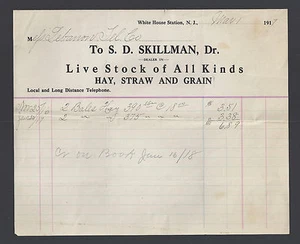 White House Station, N. J., Mar 1 191
M Lebanon
To S. D. SKILLMAN, Dr.
DEALER IN
Live Stock of All Kinds
HAY, STRAW AND GRAIN
Local and Long Distance Telephone.
2 Bales Hay 390 lb @ 18 $ 3.51
2 " " 375 " " 3.38
$ 6.89
on Book Jan /18